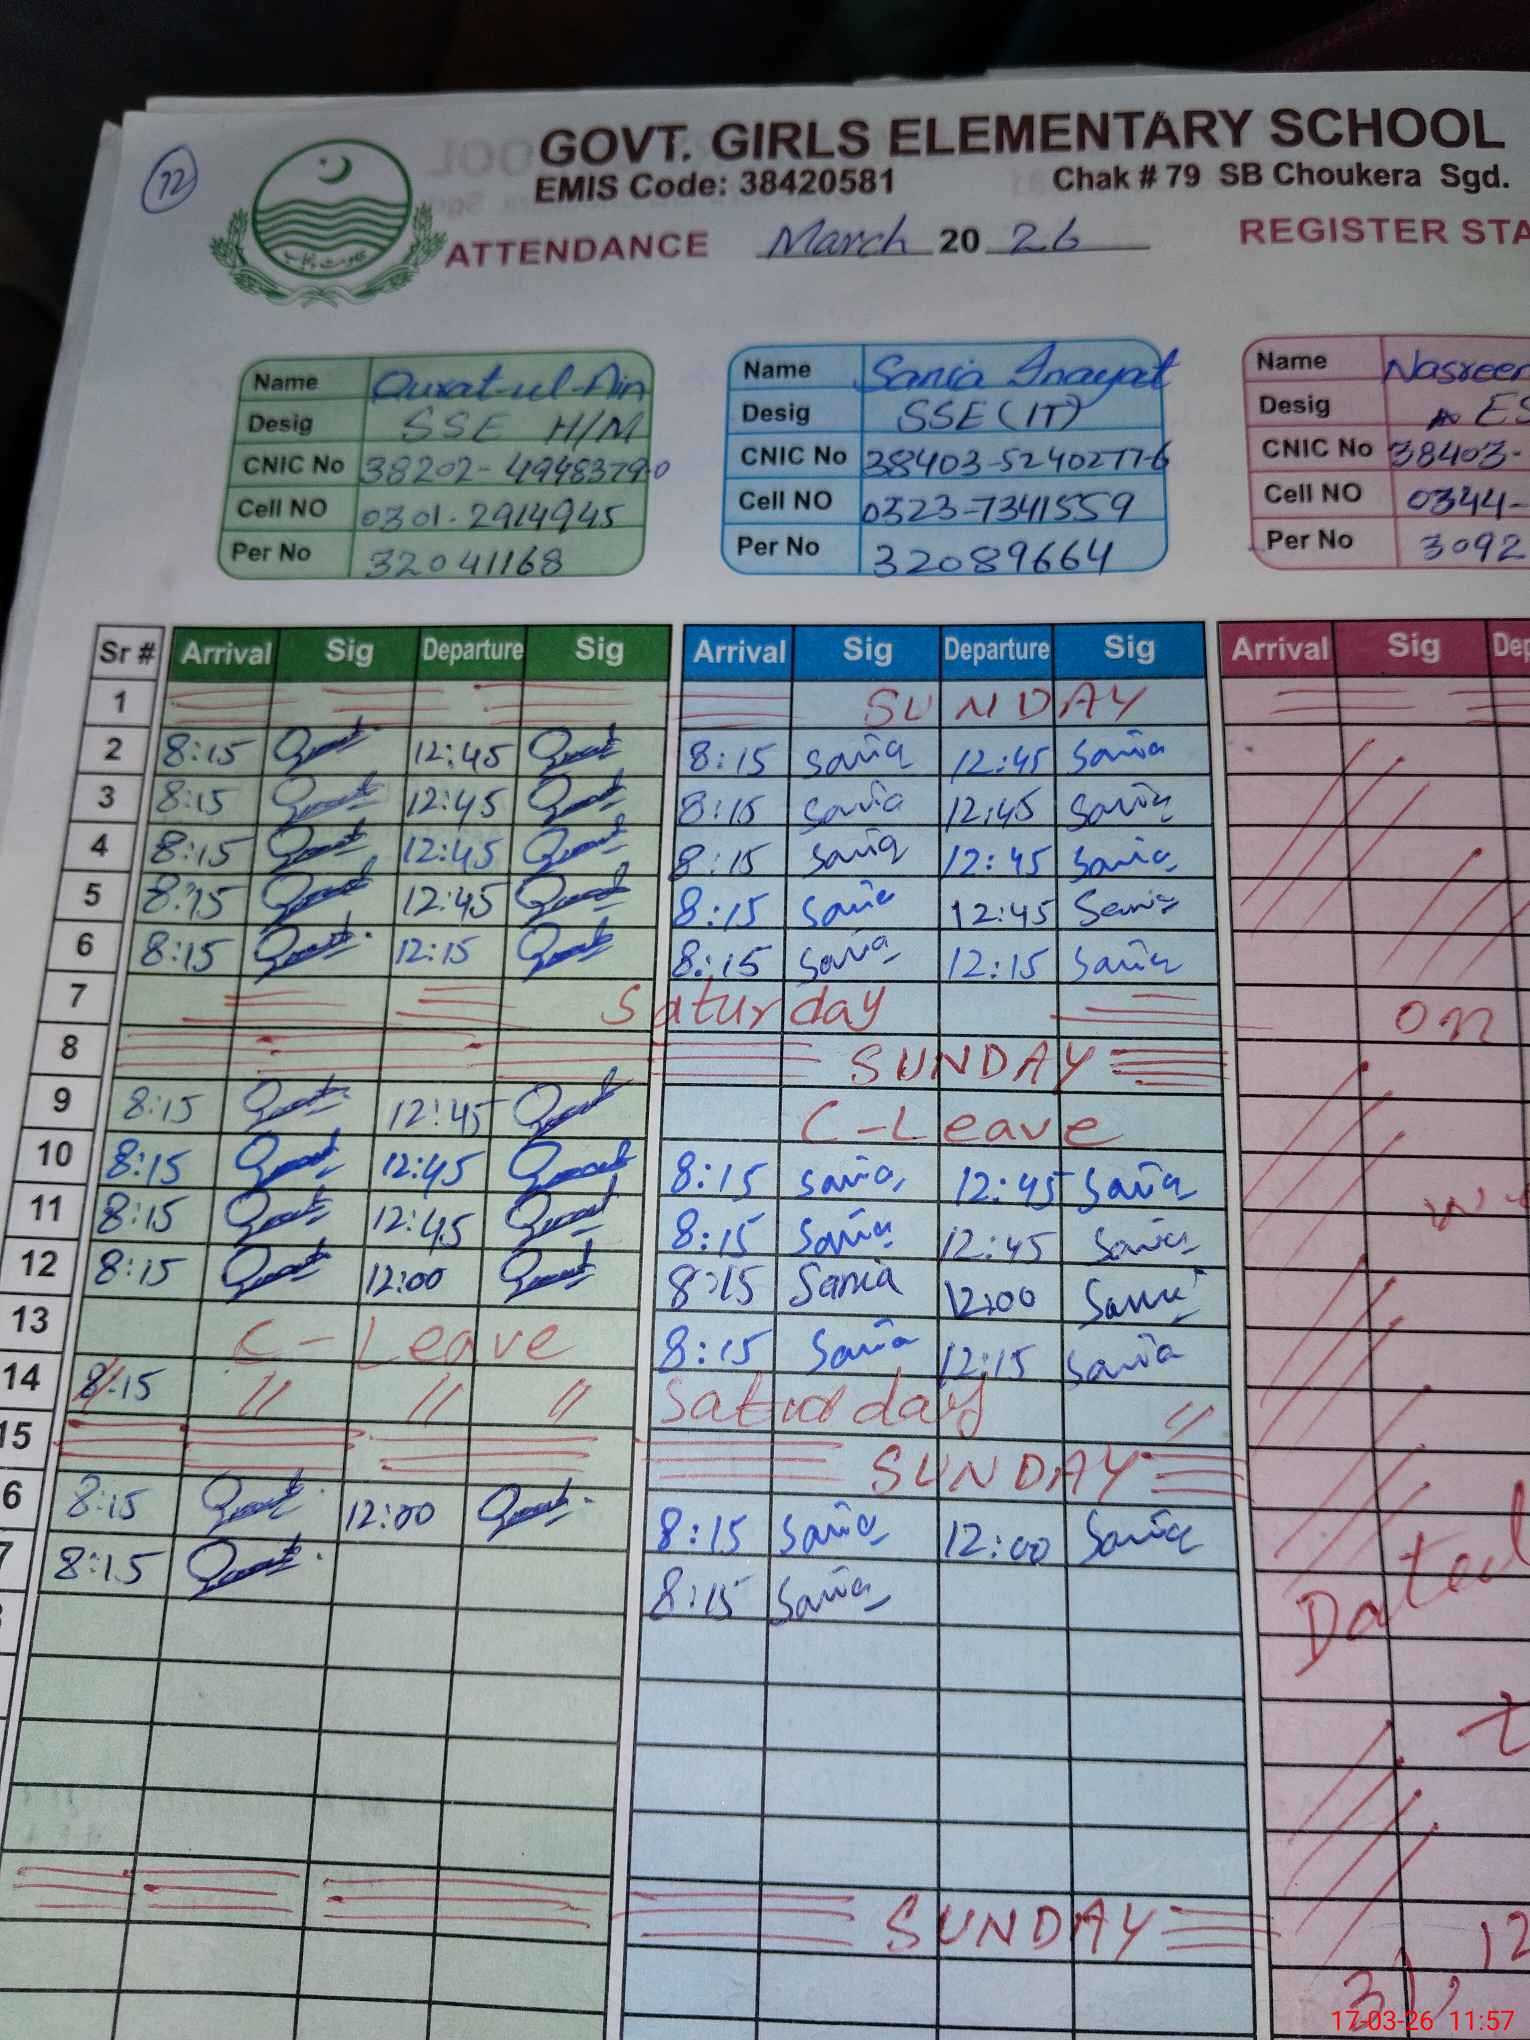 72
GOVT. GIRLS ELEMENTARY SCHOOL
EMIS Code: 38420581 Chak # 79 SB Choukera Sgd.
ATTENDANCE March 20 26 REGISTER STA
Name Qurat-ul-Ain Name Sania Inayat Name Nasreen
Desig SSE H/M Desig SSE (IT) Desig ES
CNIC No 38202-4948379-0 CNIC No 38403-5240277-6 CNIC No 38403-
Cell NO 0301-2914945 Cell NO 0323-7341559 Cell NO 0344-
Per No 32041168 Per No 32089664 Per No 3092
Sr # Arrival Sig Departure Sig Arrival Sig Departure Sig Arrival Sig Dep
1 SUNDAY
2 8:15 Qurat 12:45 Qurat 8:15 Sania 12:45 Sania
3 8:15 Qurat 12:45 Qurat 8:15 Sania 12:45 Sania
4 8:15 Qurat 12:45 Qurat 8:15 Sania 12:45 Sania
5 8:15 Qurat 12:45 Qurat 8:15 Sania 12:45 Sania
6 8:15 Qurat 12:15 Qurat 8:15 Sania 12:15 Sania
7 Saturday on
8 SUNDAY
9 8:15 Qurat 12:45 Qurat C-Leave
10 8:15 Qurat 12:45 Qurat 8:15 Sania 12:45 Sania
11 8:15 Qurat 12:45 Qurat 8:15 Sania 12:45 Sania
12 8:15 Qurat 12:00 Qurat 8:15 Sania 12:00 Sania
13 C-Leave 8:15 Sania 12:15 Sania
14 8:15 " " " Saturday "
15 SUNDAY
6 8:15 Qurat 12:00 Qurat 8:15 Sania 12:00 Sania
7 8:15 Qurat 8:15 Sania
Dated
t
SUNDAY
12
31,
17-03-26 11:57